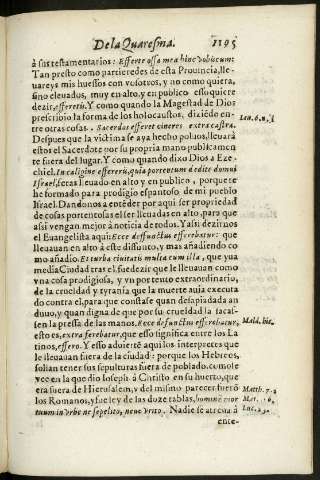 De la Quaresma. 1195
à sus testamentarios: Efferte ossa mea hinc vobiscum:
Tan presto como partieredes de esta Prouincia, lle-
uareys mis huessos con vosotros, y no como quiera,
sino eleuados, muy en alto, y en publico esso quiere
dezir, efferetis. Y como quando la Magestad de Dios
prescribio la forma de los holocaustos, diziēdo en-
tre otras cosas. Sacerdos efferet cineres extra castra.
Despues que la victima se aya hecho poluos, lleuarà
estos el Sacerdote por su propria mano publicamen
te fuera del lugar. Y como quando dixo Dios a Eze-
chiel. In caligine effereris, quia portentum dedi te domui
Israel, seras lleuado en alto y en publico, porque te
he formado para prodigio espantoso de mi pueblo
Israel. Dandonos a entēder por aqui ser propriedad
de cosas portentosas el ser lleuadas en alto, para que
assi vengan mejor à noticia de todos. Y assi dezirnos
el Euangelista aqui: Ecce defunctus efferebatur: que
lleuauan en alto à este difunto, y mas añadiendo co
mo añadio. Et turba ciuitatis multa cum illa, que yua
media Ciudad tras el, fue dezir que le lleuauan como
vna cosa prodigiosa, y vn portento extraordinario,
de la crueldad y tyrania que la muerte auia executa
do contra el, para que constasse quan desapiadada an
duuo, y quan digna de que por su crueldad la sacas-
sen la pressa de las manos. Ecce defunctus efferebatur,
esto es, extra ferebatur, que esso significa entre los La
tinos, effero. Y esso aduierte aqui los interpretes que
le lleuauan fuera de la ciudad: porque los Hebreos,
solian tener sus sepulturas fuera de poblado, como le
vee en la que dio Ioseph à Christo en su huerto, que
era fuera de Hierusalem, y del mismo parecer fuerō
los Romanos, y fue ley de las doze tablas, hominē mor
tuum in vrbe ne sepelito, neue vrito. Nadie se atreua à
ente-
Leu. 6.
Mald. hic.
Matth. 7.
Mar.
Luc. 23.